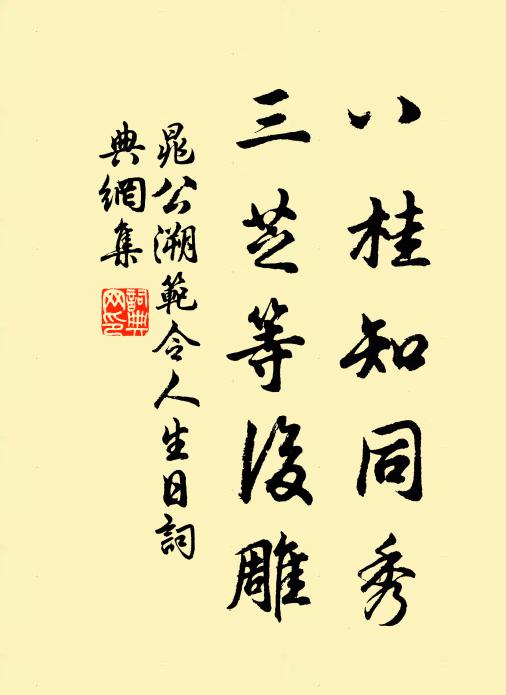 八桂知同秀
三芝等後雕
晁公溯範令人生日詞
典網集
詞典
網印